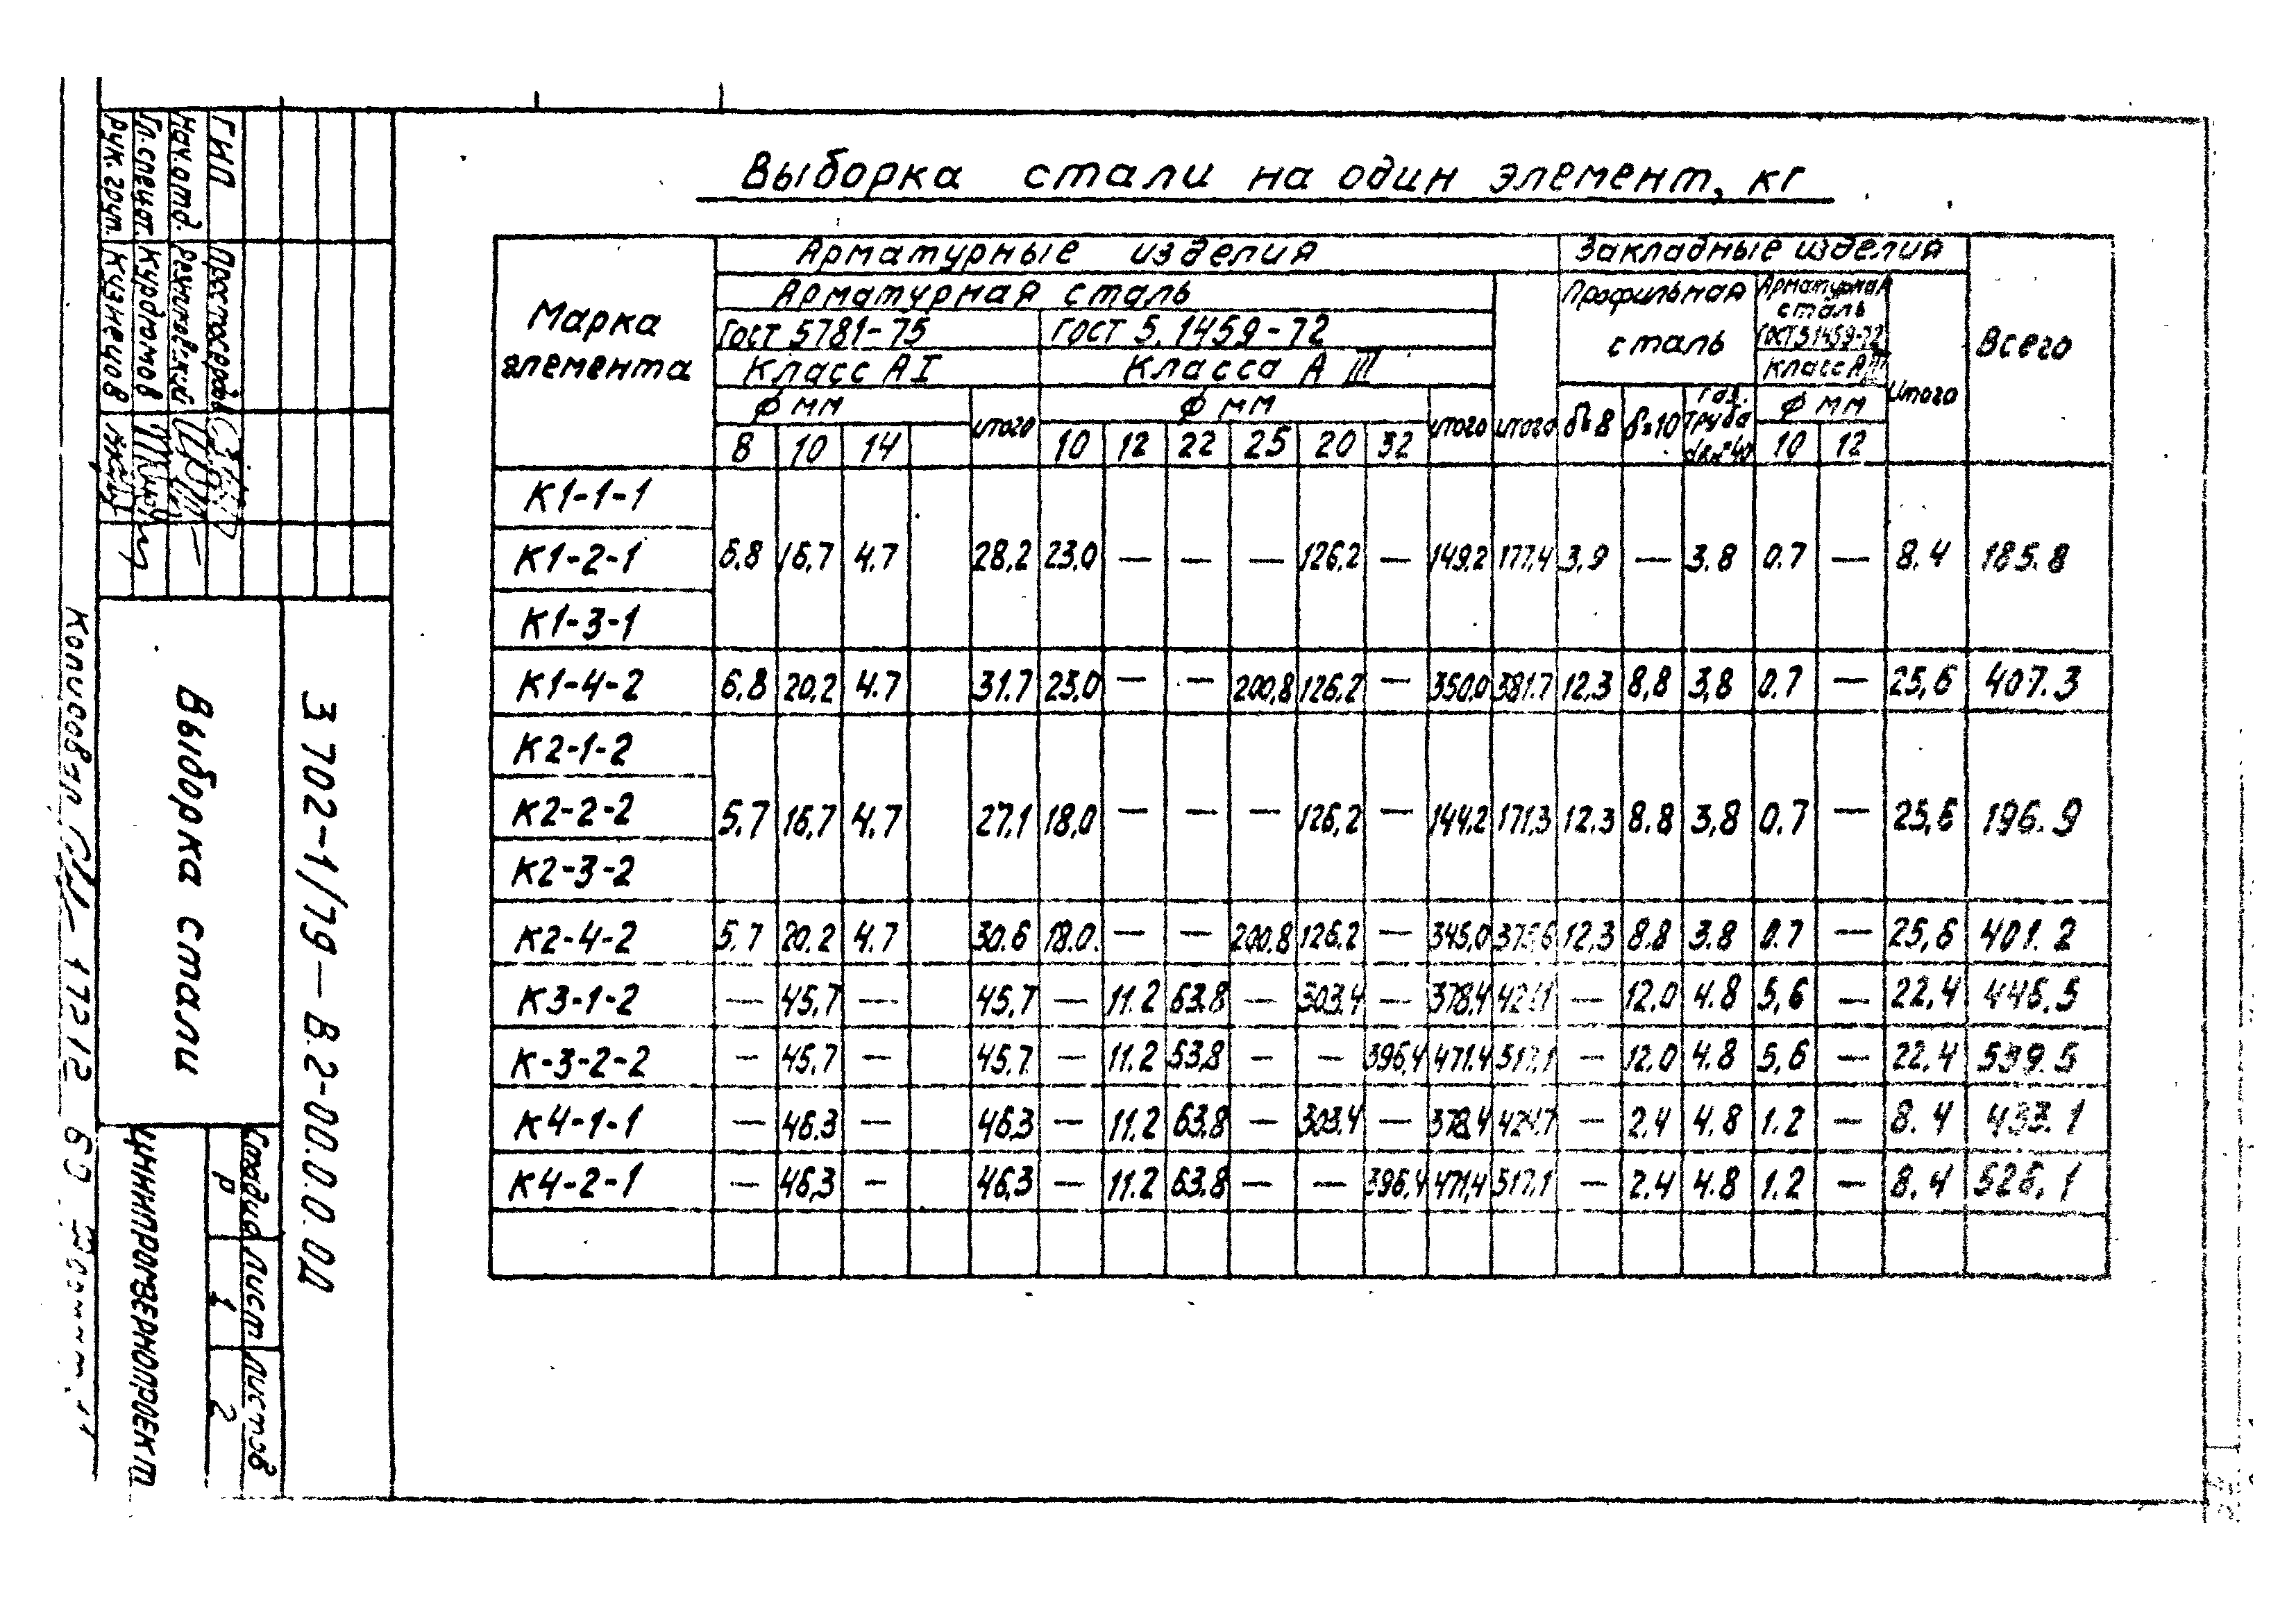 Выборка стали на один элемент, кг
Марка элемента
Арматурные изделия
Закладные изделия
Всего
Арматурная сталь
Профильная сталь
Арматурная сталь
ГОСТ 5.1459-72
Класс А III
Гост 5781-75
гост 5.1459-72
Класс А I
Класса А III
Ф мм
итого
Ф мм
итого
итого
δ=8
δ=10
газ. труба
Ф мм
Итого
8 10 14
10 12 22 25 20 32
10 12
К1-1-1
К1-2-1 6,8 16,7 4.7 28,2 23,0 — — — 126,2 — 149,2 177,4 3,9 — 3.8 0.7 — 8.4 185.8
К1-3-1
К1-4-2 6,8 20,2 4.7 31.7 23,0 — — 200,8 126,2 — 350,0 381.7 12,3 8,8 3,8 0.7 — 25,6 407.3
К2-1-2
К2-2-2 5.7 16,7 4.7 27,1 18,0 — — — 126,2 — 144,2 171,3 12.3 8.8 3,8 0.7 — 25,6 196.9
К2-3-2
К2-4-2 5.7 20.2 4.7 30.6 18.0 — — 200.8 126.2 — 345,0 375,6 12,3 8.8 3.8 0.7 — 25,6 401.2
К3-1-2 — 45,7 — 45,7 — 11.2 63.8 — 303,4 — 378,4 — 12.0 4.8 5,6 — 22,4 446.5
К-3-2-2 — 45.7 — 45.7 — 11.2 63,8 — — 396,4 471.4 517,1 — 12.0 4.8 5,6 — 22.4 539.5
К4-1-1 — 46.3 — 46,3 — 11.2 63.8 — 303.4 — 378,4 424.7 — 2.4 4.8 1.2 — 8.4 433.1
К4-2-1 — 46,3 — 46,3 — 11.2 63.8 — — 396,4 471,4 517.1 — 2.4 4.8 1.2 — 8.4 526.1
ГИП Простосердов
Нач.отд.
Гл.специал. Курдюмов
Рук.груп. Кузнецов
3 702-1/79 — В.2-00.0.0.0Д
Выборка стали
Стадия Лист Листов
Р 1 2
ЦНИИПРОМЗЕРНОПРОЕКТ
Копировал 17212 69 Формат 11